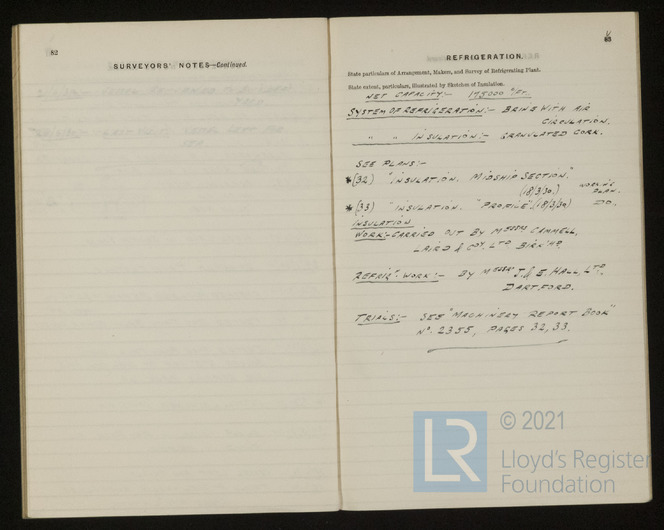 82
SURVEYORS' NOTES—Continued.
83
REFRIGERATION.
State particulars of Arrangement, Makers, and Survey of Refrigerating Plant.
State extent, particulars, illustrated by Sketches of Insulation.
NET CAPACITY:-
SYSTEM OF REFRIGERATION:- BRINE WITH AIR
CIRCULATION.
" " INSULATION:- GRANULATED CORK.
SEE PLANS:-
*(32) "INSULATION. MIDSHIP SECTION."
(18/3/30.) WORKING PLAN.
*(33) "INSULATION. "PROFILE" (18/3/30) DO.
INSULATION
WORK:- CARRIED OUT BY MESSRS CAMMELL,
LAIRD & COY. LTD BIRK'HD.
REFRIG. WORK:- BY MESSRS J. & E. HALL, LTD.
DARTFORD.
TRIALS:- SEE "MACHINERY REPORT BOOK"
No. 2355, PAGES 32, 33.
© 2021
LR
Lloyd's Register
Foundation